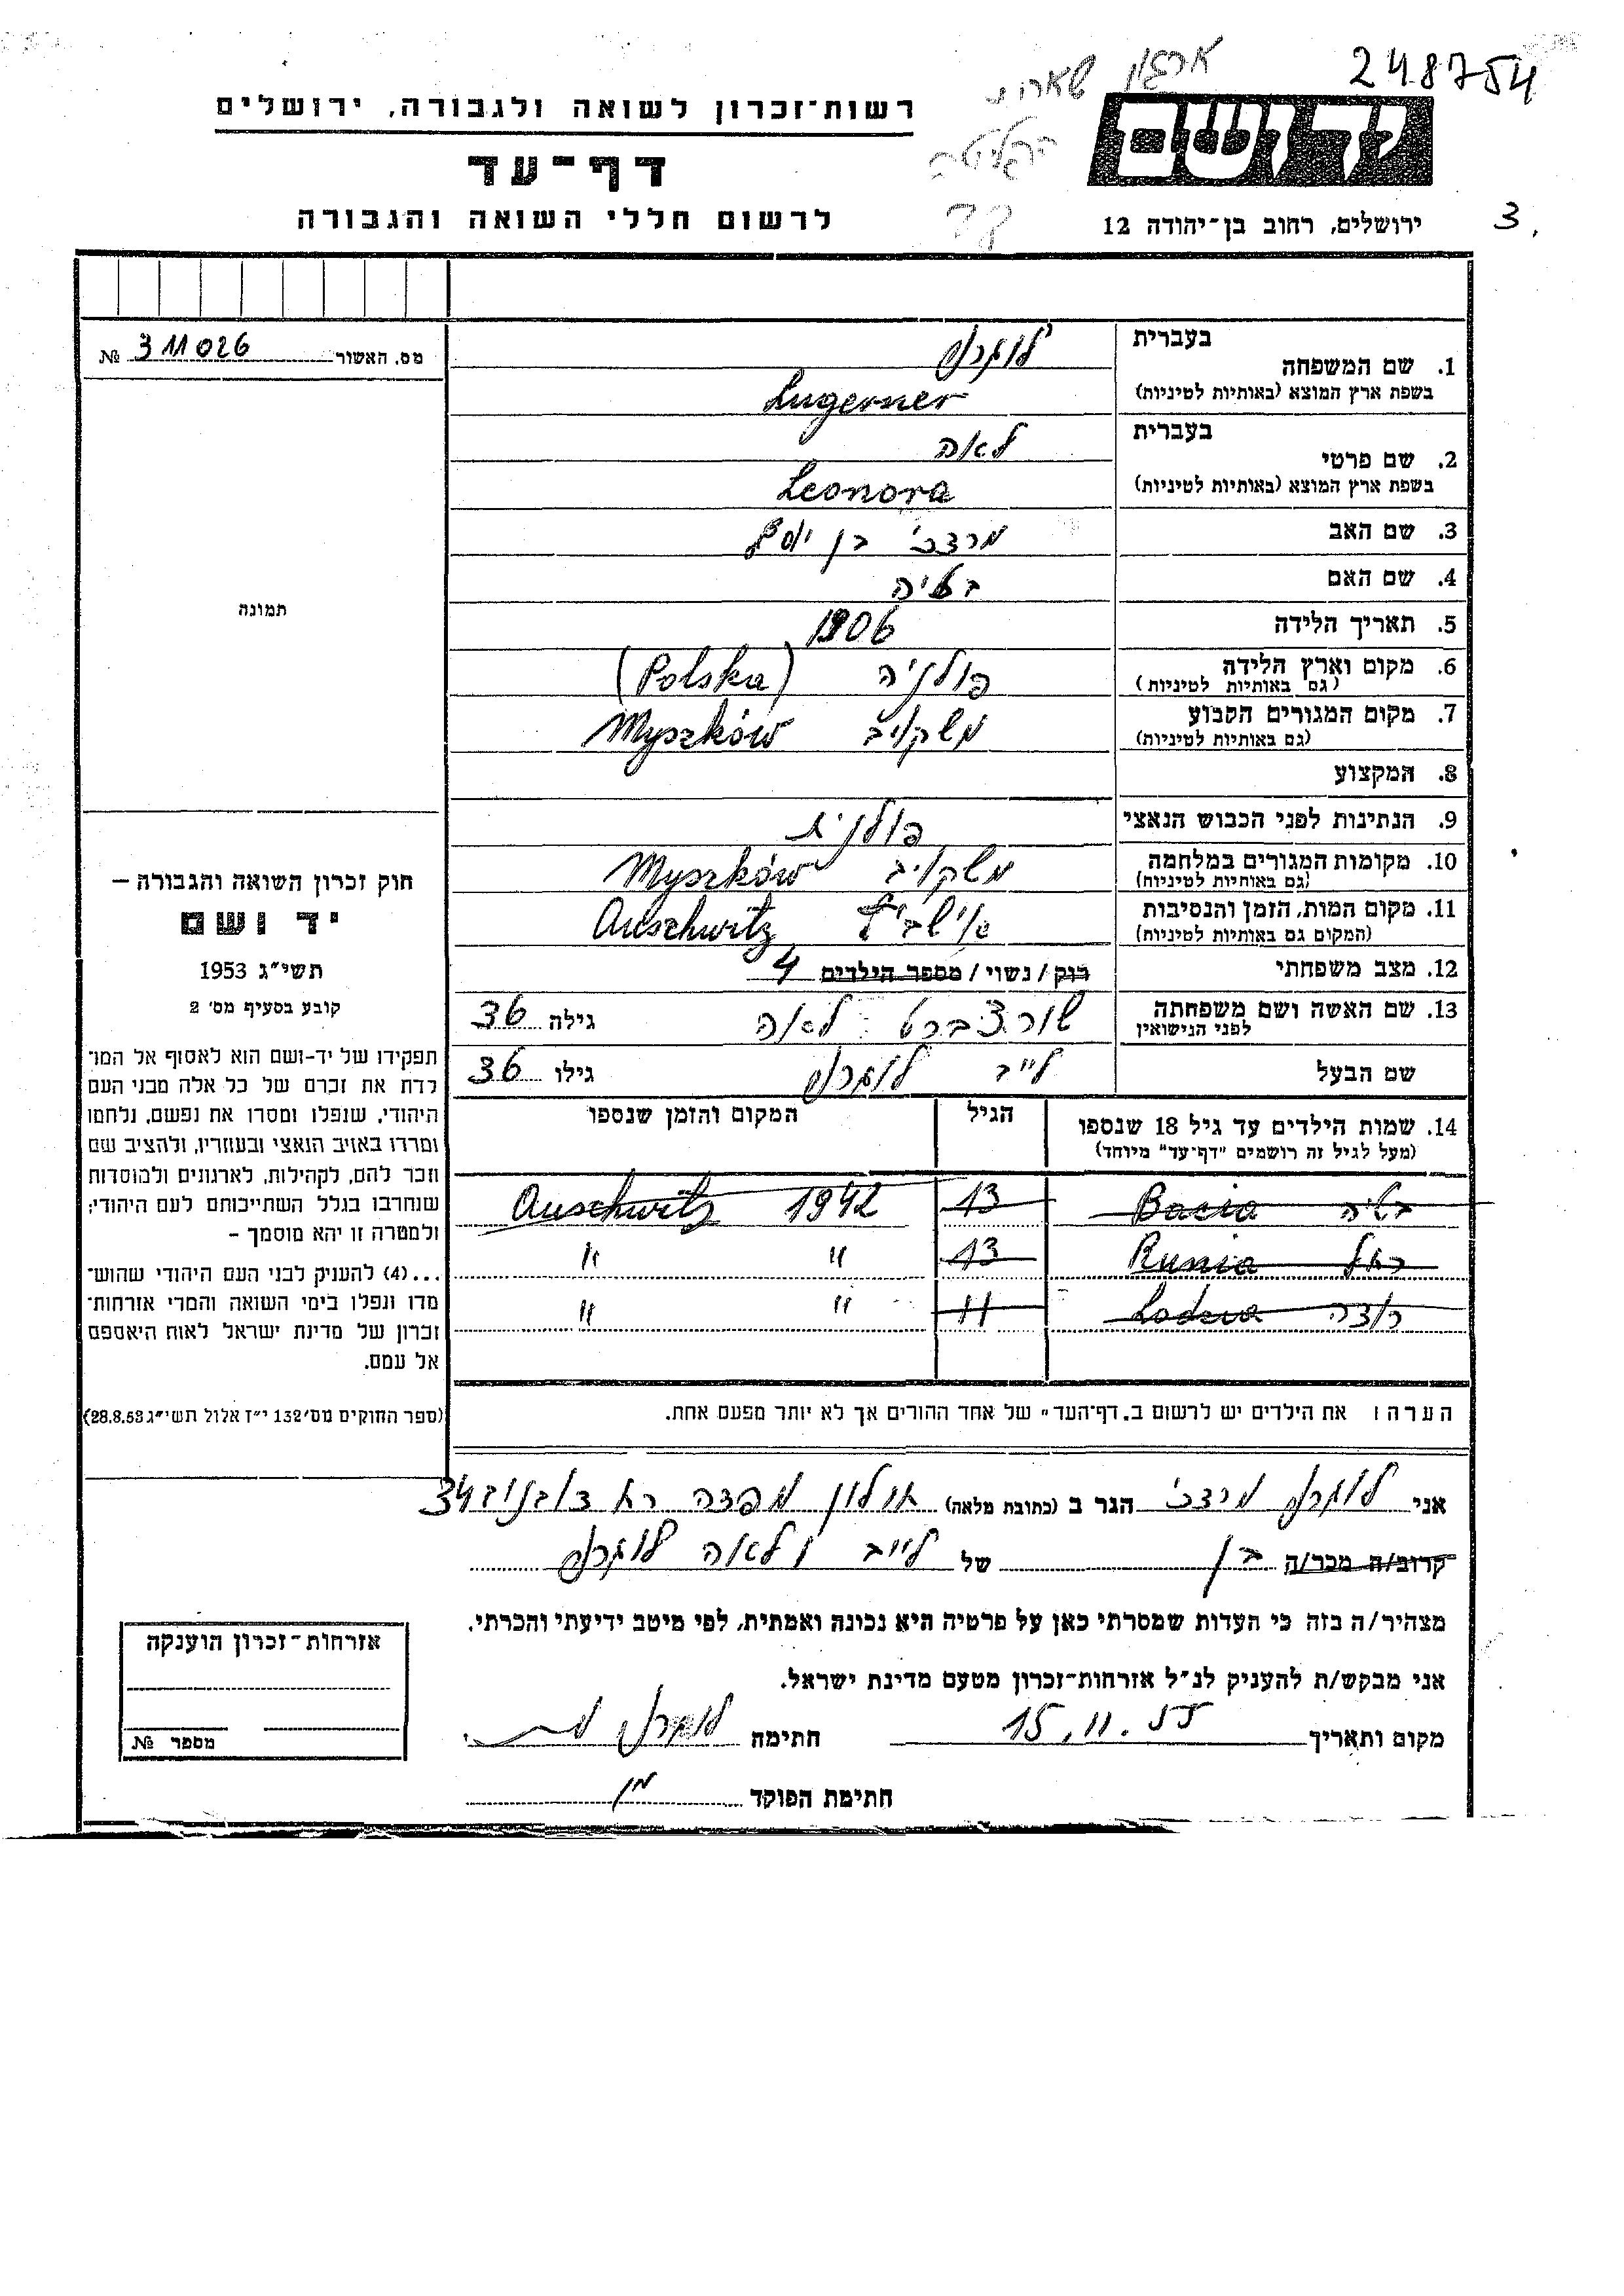 248754
ארגון שארית
הפליטה
רשות־זכרון לשואה ולגבורה, ירושלים
דף־עד
לרשום חללי השואה והגבורה
ידושם
ירושלים, רחוב בן־יהודה 12
3.
מס. האשור 311026 №
תמונה
חוק זכרון השואה והגבורה –
יד ושם
תשי״ג 1953
קובע בסעיף מס׳ 2
תפקידו של יד-ושם הוא לאסוף אל המו־
לדת את זכרם של כל אלה מבני העם
היהודי, שנפלו ומסרו את נפשם, נלחמו
ומרדו באויב הנאצי ובעוזריו, ולהציב שם
וזכר להם, לקהילות, לארגונים ולמוסדות
שנחרבו בגלל השתייכותם לעם היהודי;
ולמטרה זו יהא מוסמך –
...(4) להעניק לבני העם היהודי שהוש־
מדו ונפלו בימי השואה והמרי אזרחות־
זכרון של מדינת ישראל לאות היאספם
אל עמם.
(ספר החוקים מס׳ 132 י״ז אלול תשי״ג 28.8.53)
בעברית
1. שם המשפחה לוגרנר
בשפת ארץ המוצא (באותיות לטיניות) Lugerner
בעברית
2. שם פרטי לאה
בשפת ארץ המוצא (באותיות לטיניות) Leonora
3. שם האב מרדכי בן יוסף
4. שם האם בתיה
5. תאריך הלידה 1906
6. מקום וארץ הלידה פולניה (Polska)
(גם באותיות לטיניות)
7. מקום המגורים הקבוע משקוב Myszków
(גם באותיות לטיניות)
8. המקצוע
9. הנתינות לפני הכבוש הנאצי פולנית
10. מקומות המגורים במלחמה משקוב Myszków
(גם באותיות לטיניות)
11. מקום המות, הזמן והנסיבות אושביץ Auschwitz
(המקום גם באותיות לטיניות)
12. מצב משפחתי רוק / נשוי / מספר הילדים 4
13. שם האשה ושם משפחתה שורצברט לאה גילה 36
לפני הנישואין
שם הבעל לייב לוגרנר גילו 36
14. שמות הילדים עד גיל 18 שנספו הגיל המקום והזמן שנספו
(מעל לגיל זה רושמים "דף־עד" מיוחד)
בתיה Bacia 13 1942 Auschwitz
רחל Runia 13 " "
רוצה 11 " "
הערה: את הילדים יש לרשום ב„דף־העד" של אחד ההורים אך לא יותר מפעם אחת.
אני לוגרנר מרדכי הגר ב (כתובת מלאה) חולון
קרוב/ה מכר/ה בן של לייב ולאה לוגרנר
מצהיר/ה בזה כי העדות שמסרתי כאן על פרטיה היא נכונה ואמתית, לפי מיטב ידיעתי והכרתי.
אני מבקש/ת להעניק לנ״ל אזרחות־זכרון מטעם מדינת ישראל.
מקום ותאריך 15.11.55 חתימה לוגרנר
חתימת הפוקד
אזרחות־זכרון הוענקה
מספר №